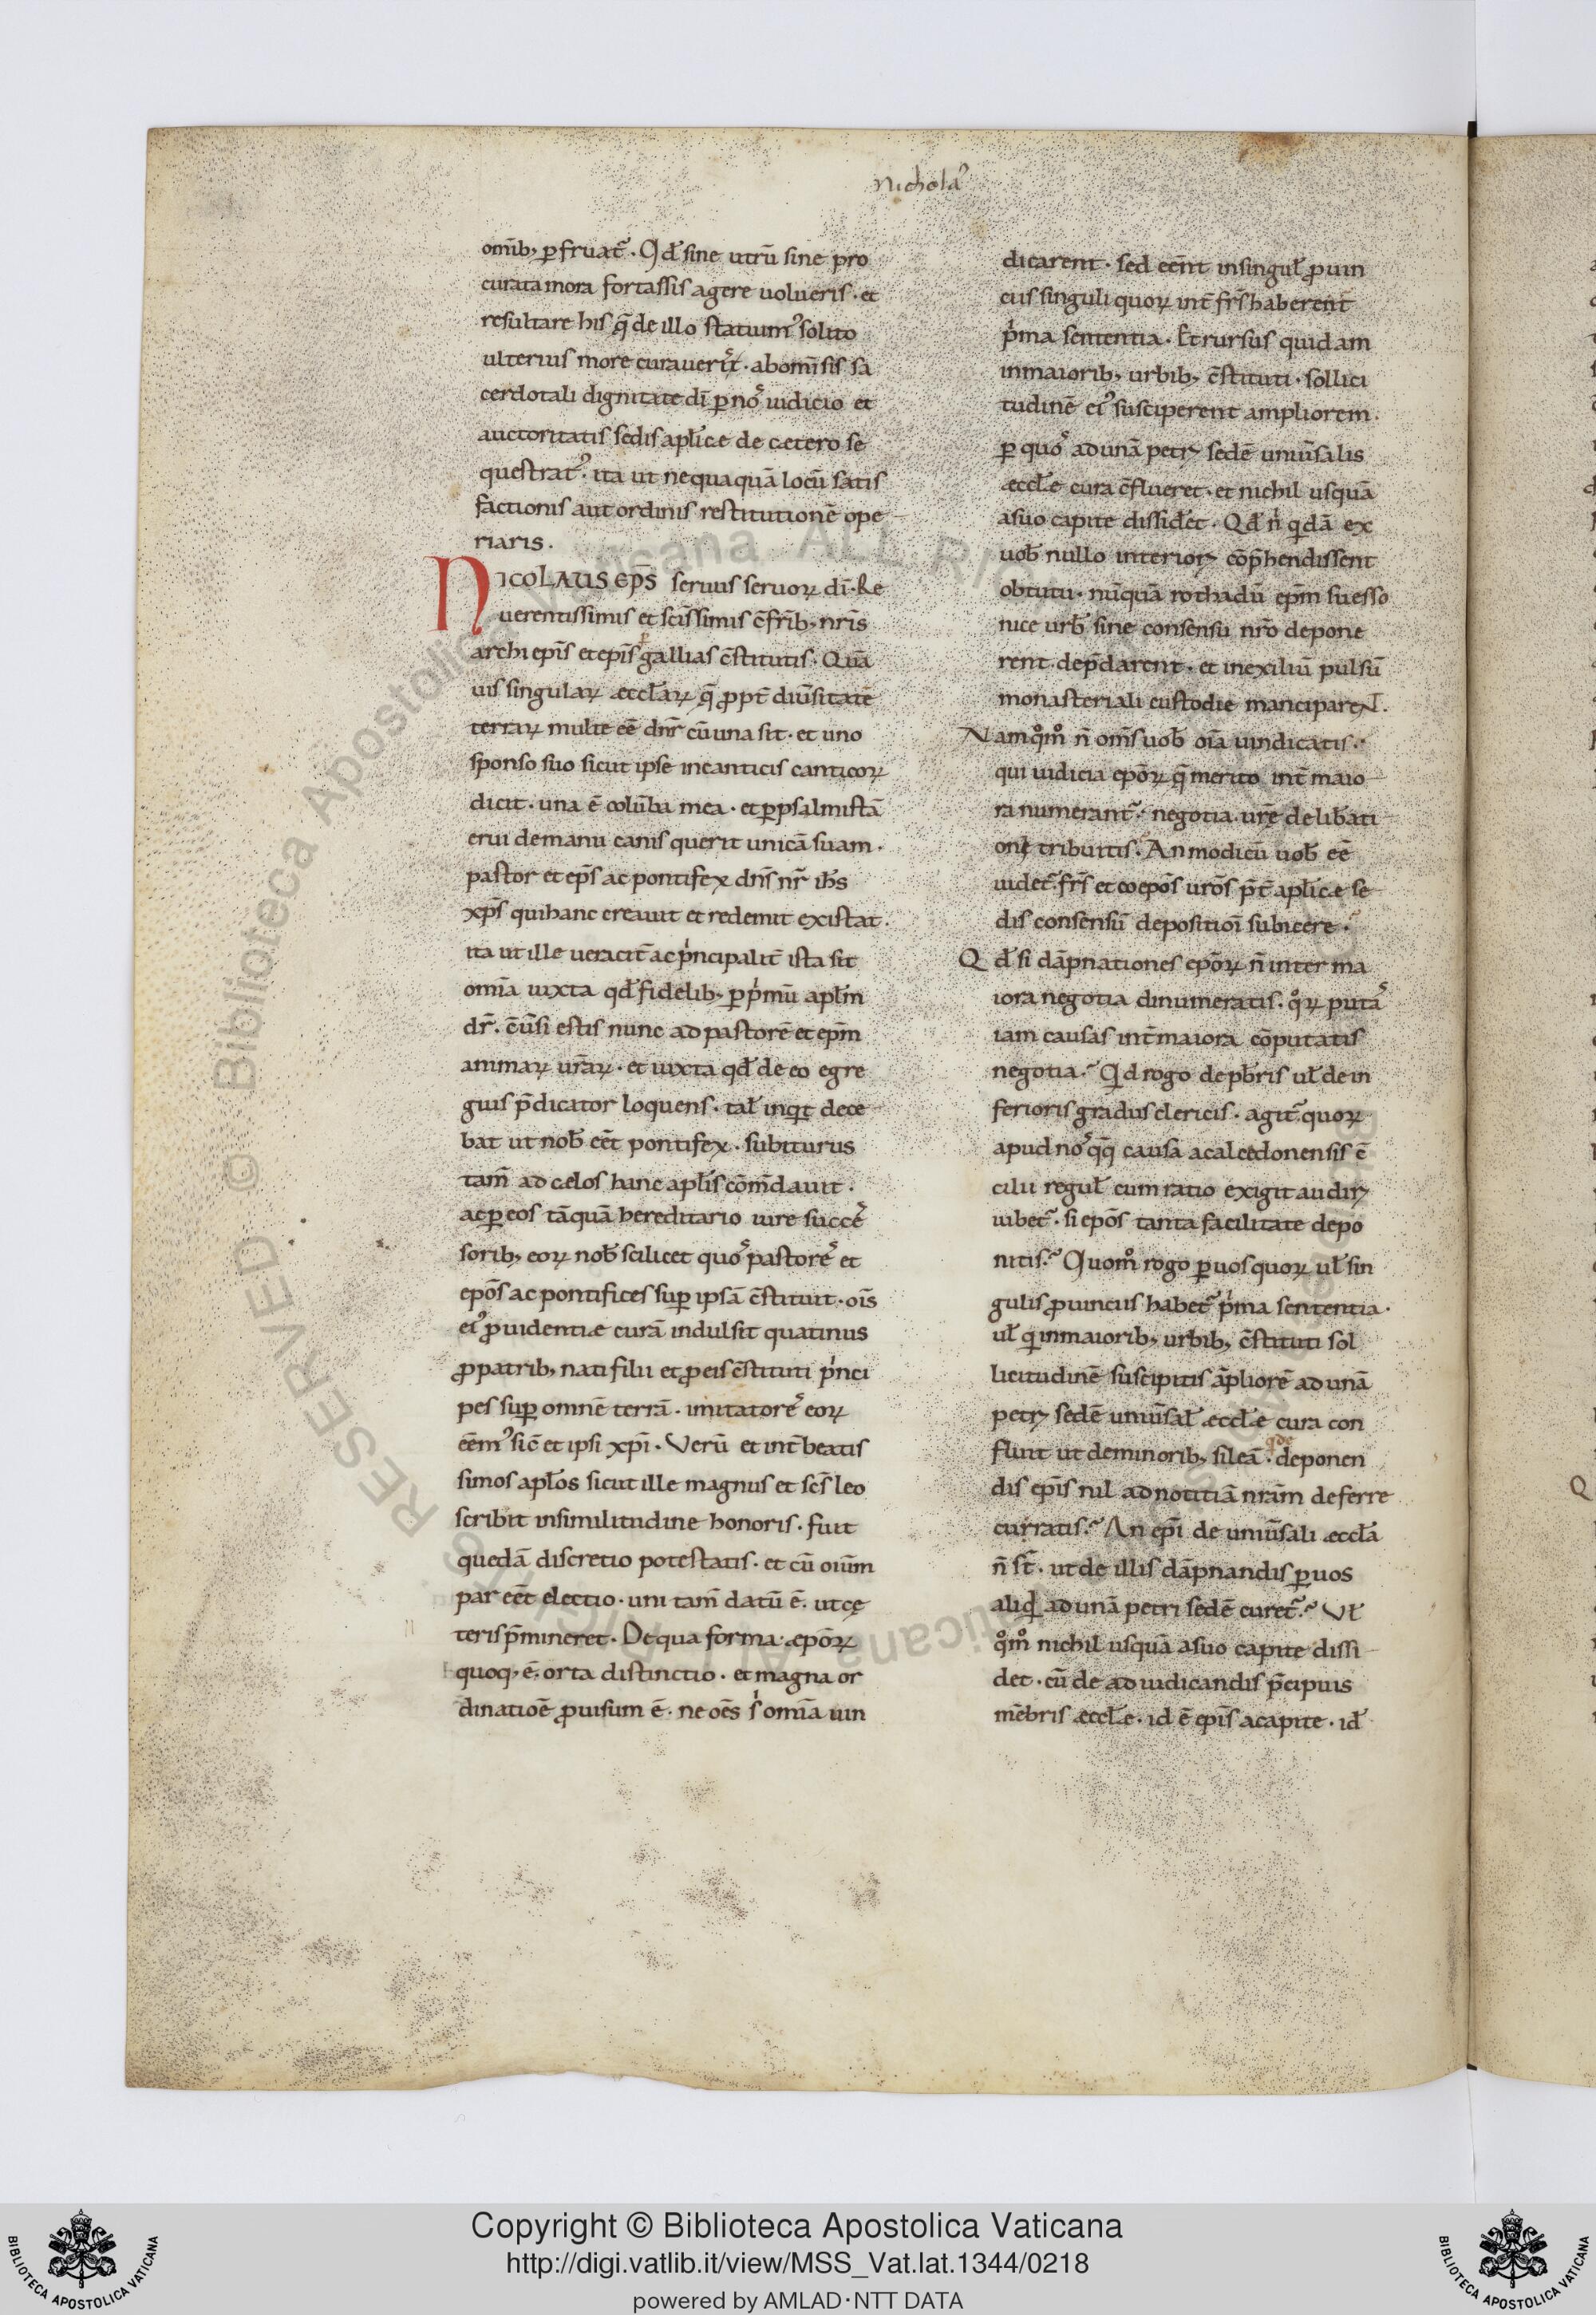 nichola᾽
omib; ꝑfruat᾽. Qđ sine utrū sine pro
curata mora fortassis agere uolueris. et
resultare his q̄ de illo statuim᾽ solito
ulterius more curauerit. ab omī sis sa
cerdotali dignitate dī ꝑ nō iudicio et
auctoritatis sedis aplicæ de cætero se
questrat᾽. ita ut nequaquā locū satis
factionis aut ordinis restitutionē ope
riaris.
NICOLAUS EP̄S seruus seruoꝝ dī. Re
uerentissimis et scīssimis c̄frīb; nr̄is
archiepīs et epīs ꝑ gallias c̄stitutis. Quā
uis singulaꝝ æcctaꝝ q̄ ꝓpt̄ diūsitatē
terraꝝ multe eē dnr̄ cū una sit. et uno
sponso suo sicut ipse in canticis canticoꝝ
dicit. una ē colūba mea. et ꝑ psalmistā
erui de manu canis querit unicā suam.
pastor et ep̄s ac pontifex dn̄s nr̄ ih̄s
xp̄s qui hanc creauit et redemit existat.
ita ut ille ueracit̄ ac pͥncipalit̄ ista sit
omīa iuxta qđ fidelib; ꝑ pͥmū aplm̄
dr̄. c̄ūsi estis nunc ad pastorē et ep̄m
animaꝝ urāꝝ. et iuxta qđ de eo egre
gius p̄dicator loquens. tał inqͥt dece
bat ut nob̄ eēt pontifex. subiturus
tam̄ ad cælos hanc aplīs cōm̄dauit.
ac ꝑ eos tāquā hereditario iure succē
sorib; eoꝝ nob̄ scilicet quō pastorē et
epōs ac pontifices suꝑ ipsā c̄stituit. oīs
ei᾽ ꝓuidentiæ curā indulsit quatinus
ꝓ patrib; nati filii et ꝓ eis c̄stituti pͥnci
pes suꝑ omnē terrā. imitatorē eoꝝ
eēm᾽ sic̄ et ipsi xp̄i. Verū et int̄ beatis
simos aplōs sicut ille magnus et scs̄ leo
scribit in similitudine honoris. fuit
quedā discretio potestatis. et cū oium̄
par eēt electio. uni tam̄ datū ē. ut cę
teris p̄mineret. De qua forma epōꝝ
quoq; ē orta distinctio. et magna or
dinatioē ꝓuisum ē. ne oēs sͥ omīa uin
dicarent. sed eēnt in singuł ꝓuin
ciis singuli quoꝝ int̄ fr̄s haberent
pͥma sententia. Et rursus quidam
in maiorib; urbib; c̄stituti. sollici
tudinē ei᾽ susciperent ampliorem.
ꝑ quō ad unā petrꝫ sedē uniūsalis
æcctæ cura c̄flueret. et nichil usquā
a suo capite dissidēt. Qđ nͥ qͥdā ex
uob̄ nullo interiorꝫ cōp̄hendissent
obtutu. nūquā rothadū ep̄m suesso
nice urb̄ sine consensu nr̄o depone
rent. dep̄darent. et in exiliū pulsū
monasteriali custodie manciparent.
Nam qͦmͦ n̄ omīs uob̄ oīa uindicatis.
qui iudicia epōꝝ q̄ merito int̄ maio
ra numerant᾽. negotia urę delib̄ati
onę tribuitis. An modicū uob̄ eē
uidet᾽ fr̄s et coepōs urōs p̄t̄ aplicæ se
dis consensū depositioī subicere.
Qđ si dāpnationes epōꝝ n̄ inter ma
iora negotia dinumeratis. qͦꝝ putā
iam causas int̄ maiora cōputatis
negotia. Qͥd rogo de pb̄ris uł de in
ferioris gradus clericis. agit᾽ quoꝝ
apud nō qq̄ causa a calcedonensis c̄
cilii reguł cum ratio exigit audirꝫ
iubet᾽. si epōs tanta facilitate depo
nitis. Quomͦ rogo ꝑ uos quoꝝ uł sin
gulis ꝓuinciis habet᾽ pͥma sententia.
uł qͥ in maiorib; urbib; c̄stituti sol
licitudinē suscipitis āpliorē ad unā
petrꝫ sedē uniūsał æcctæ cura con
fluit ut de minorib; sileā. de deponen
dis epīs nil ad notitiā nrām deferre
curratis. An epī de uniūsali æcctā
n̄ st̄. ut de illis dāpnandis ꝑ uos
aliqͥd ad unā petri sedē curet᾽. Vł
qͦmͦ nichil usquā a suo capite dissi
det. cū de adiudicandis p̄cipuis
mēbris æcctæ. id ē epīs a capite. id
Copyright © Biblioteca Apostolica Vaticana
http://digi.vatlib.it/view/MSS_Vat.lat.1344/0218
powered by AMLAD·NTT DATA
BIBLIOTECA APOSTOLICA VATICANA
BIBLIOTECA APOSTOLICA VATICANA